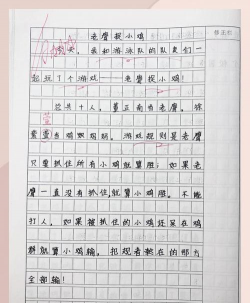 老鹰捉小鸡
今天，我和游泳队的队友们一
起玩了个游戏——老鹰捉小鸡！
总共十人，董正南当老鹰，徐
莹
当鸡妈妈。游戏规则是老鹰
只要抓住所有小鸡就算胜；如果老
鹰一直没有抓住，就算小鸡胜。不能
打人，如果被抓住的小鸡还呆在鸡
群就算小鸡输。把观者赖在的那方
全部输！